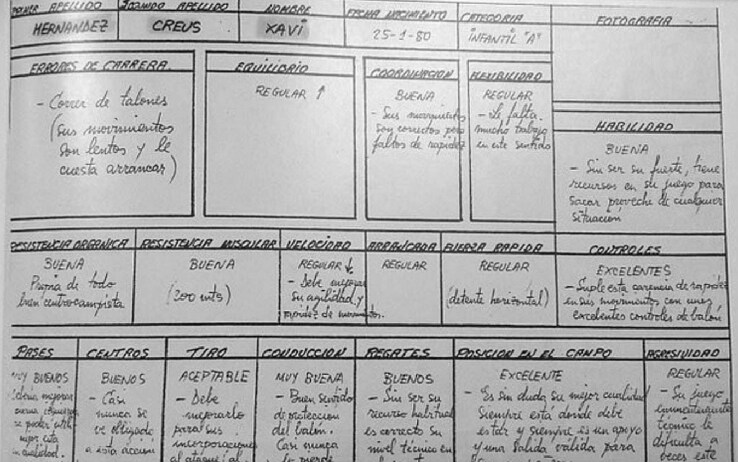 PRIMER APELLIDO
SEGUNDO APELLIDO
NOMBRE
FECHA NACIMIENTO
CATEGORIA
FOTOGRAFIA
HERNANDEZ
CREUS
XAVI
25-1-80
INFANTIL "A"
ERRORES DE CARRERA
- Correr de talones
(sus movimientos
son lentos y le
cuesta arrancar)
EQUILIBRIO
REGULAR ↑
COORDINACION
BUENA
- Sus movimientos
son correctos pero
faltos de rapidez
FLEXIBILIDAD
REGULAR
- Le falta
mucho trabajo
en este sentido
HABILIDAD
BUENA
- Sin ser su fuerte, tiene
recursos en su juego para
sacar provecho de cualquier
situación
RESISTENCIA ORGANICA
BUENA
Propia de todo
buen centrocampista
RESISTENCIA MUSCULAR
BUENA
(200 mts)
VELOCIDAD
REGULAR ↓
- Debe mejorar
su agilidad y
rapidez de movimientos.
ARRANCADA
REGULAR
FUERZA RAPIDA
REGULAR
(detente horizontal)
CONTROLES
EXCELENTES
- Suple esta carencia de rapidez
en sus movimientos con unos
excelentes controles de balón
PASES
MUY BUENOS
mejorar
CENTROS
BUENOS
- Casi
nunca se
ve obligado
a esta acción
TIRO
ACEPTABLE
- Debe
mejorarlo
para sus
incorporaciones
al ataque; al
CONDUCCION
MUY BUENA
- Buen sentido
de protección
del balón.
Casi nunca
lo pierde
REGATES
BUENOS
- Sin ser su
recurso habitual
es correcto su
nivel técnico en
POSICION EN EL CAMPO
EXCELENTE
- Es sin duda su mejor cualidad
siempre está donde debe
estar y siempre es un apoyo
y una salida válida para
AGRESIVIDAD
REGULAR
- Su juego
eminentemente
técnico le
dificulta a
veces este